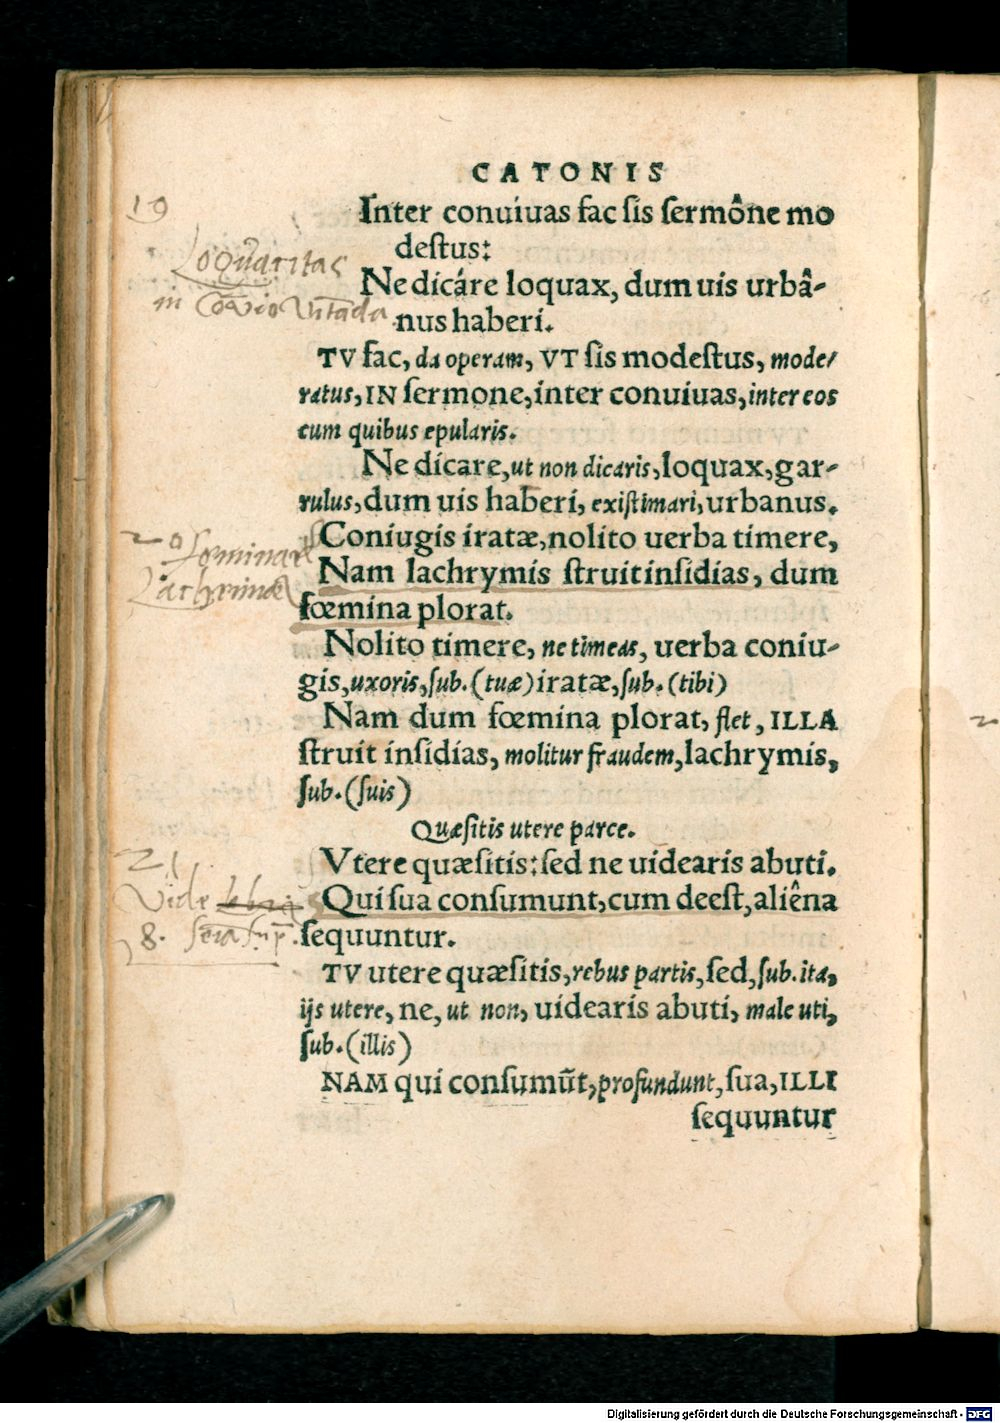 CATONIS
19
Inter conuiuas fac sis sermône mo
destus:
Loquacitas
in Cōvivio Vitāda
Ne dicáre loquax, dum uis urbâ-
nus haberi.
TV fac, da operam, VT sis modestus, mode/
ratus, IN sermone, inter conuiuas, inter eos
cum quibus epularis.
Ne dicare, ut non dicaris, loquax, gar-
rulus, dum uis haberi, existimari, urbanus.
20 fœminaræ
Lachrimæ
Coniugis iratæ, nolito uerba timere,
Nam lachrymis struit insidias, dum
fœmina plorat.
Nolito timere, ne timeas, uerba coniu-
gis, uxoris, sub. (tuæ) iratæ, sub. (tibi)
Nam dum fœmina plorat, flet, ILLA
struit insidias, molitur fraudem, lachrymis,
sub. (suis)
Quæsitis utere parce.
21
Vide
8.
Vtere quæsitis: sed ne uidearis abuti.
Qui sua consumunt, cum deest, aliêna
sequuntur.
TV utere quæsitis, rebus partis, sed, sub. ita,
ijs utere, ne, ut non, uidearis abuti, male uti,
sub. (illis)
NAM qui consumūt, profundunt, sua, ILLI
sequuntur
Digitalisierung gefördert durch die Deutsche Forschungsgemeinschaft - DFG